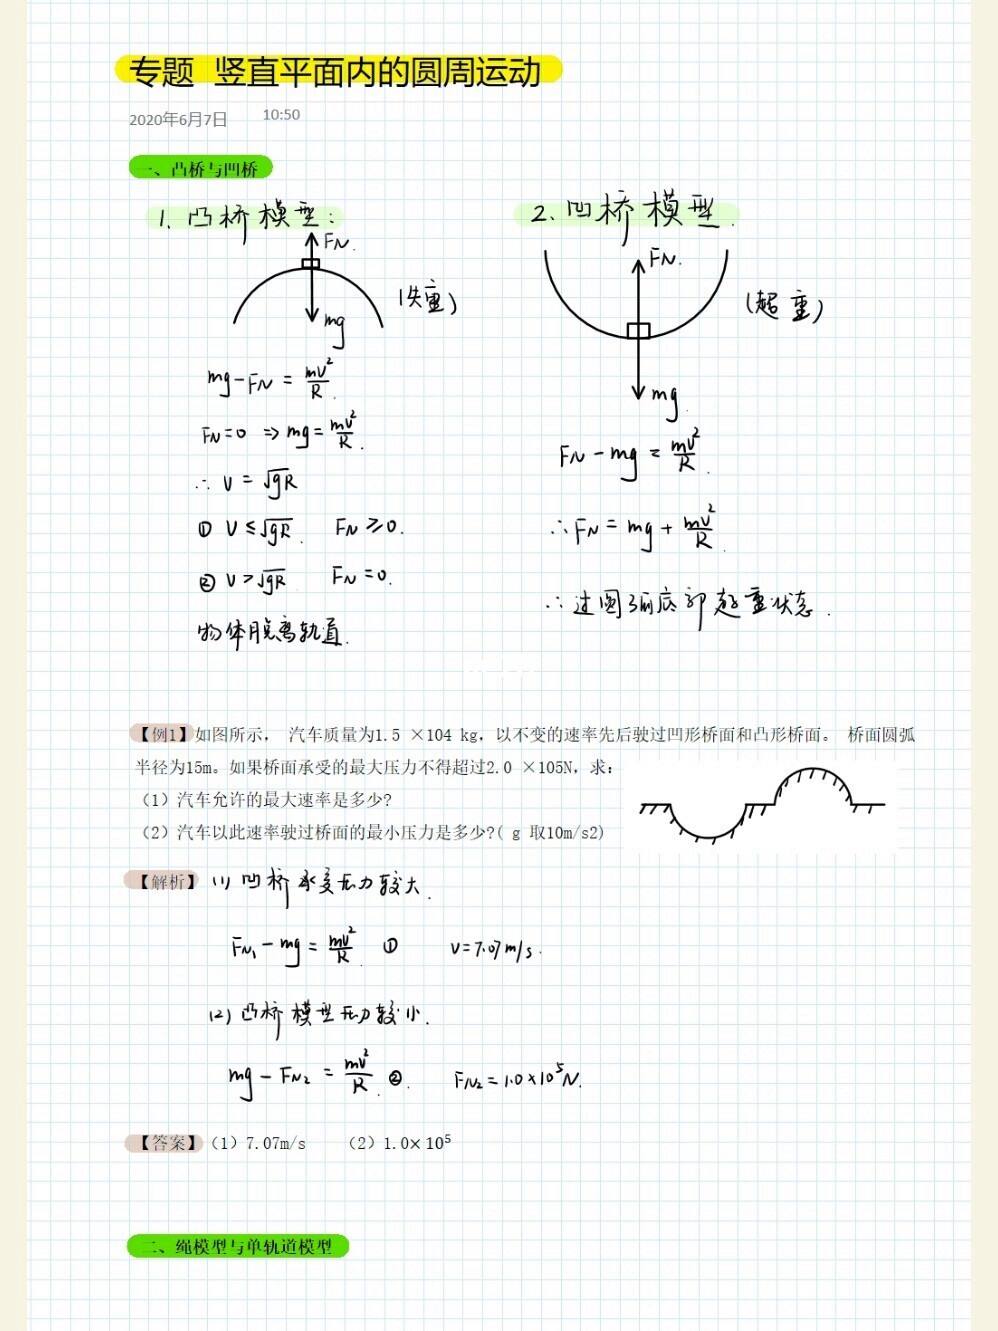 专题 竖直平面内的圆周运动
2020年6月7日 10:50
一、凸桥与凹桥
1. 凸桥模型:
FN.
(失重)
mg
mg-FN = mv²/R.
FN=0 ⇒ mg = mv²/R.
∴ V = √gR
① V ≤ √gR. FN ≥ 0.
② V > √gR. FN = 0.
物体脱离轨道.
2. 凹桥模型.
FN.
(超重)
mg.
FN - mg = mv²/R.
∴ FN = mg + mv²/R.
∴ 过圆弧底部超重状态.
【例1】如图所示， 汽车质量为1.5 ×104 kg，以不变的速率先后驶过凹形桥面和凸形桥面。 桥面圆弧
半径为15m。如果桥面承受的最大压力不得超过2.0 ×105N，求：
（1）汽车允许的最大速率是多少?
（2）汽车以此速率驶过桥面的最小压力是多少?( g 取10m/s2)
【解析】 (1) 凹桥承受压力较大.
FN₁ - mg = mv²/R. ① V=7.07m/s.
(2) 凸桥模型压力较小.
mg - FN₂ = mv²/R. ②. FN₂ = 1.0×10⁵N.
【答案】（1）7.07m/s （2）1.0×10⁵
二、绳模型与单轨道模型